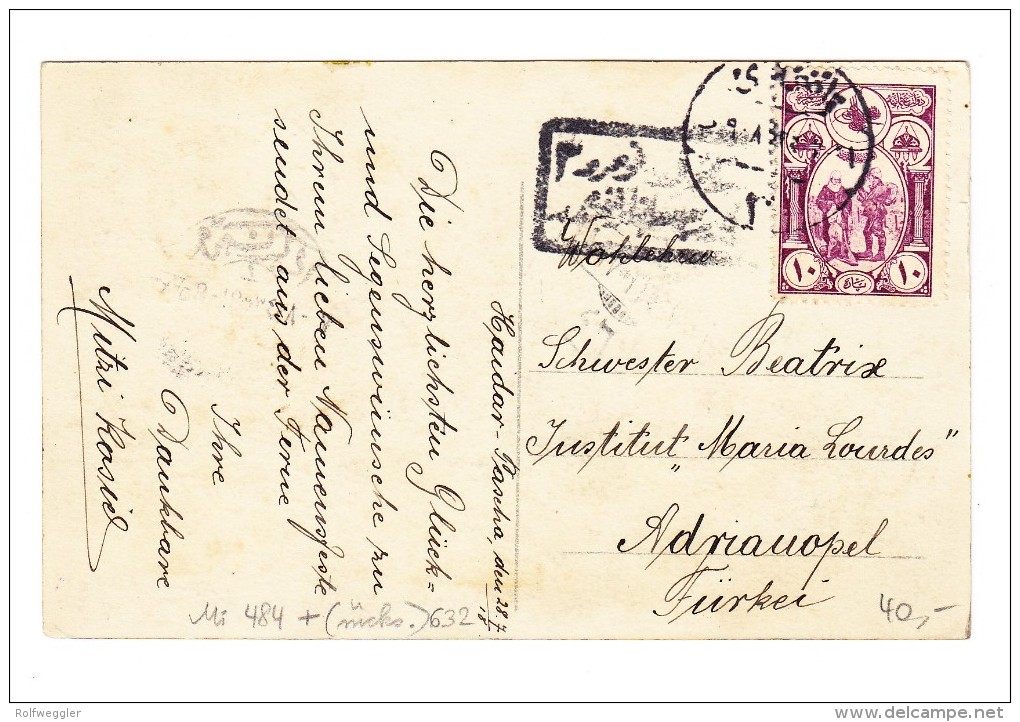 Haidar-Pascha, den 28.7.18
Die herzlichsten Glück-
und Segenswünsche zu
Ihrem lieben Namensfeste
sendet aus der Ferne
Ihre
Dankbare
Mitzi
Schwester Beatrix
Institut „Maria Lourdes"
Adrianopel
Türkei
١٠ ١٠
پاره
Mi 484 + (rücks.) 632
40,-
Rolfweggler
delcampe.net